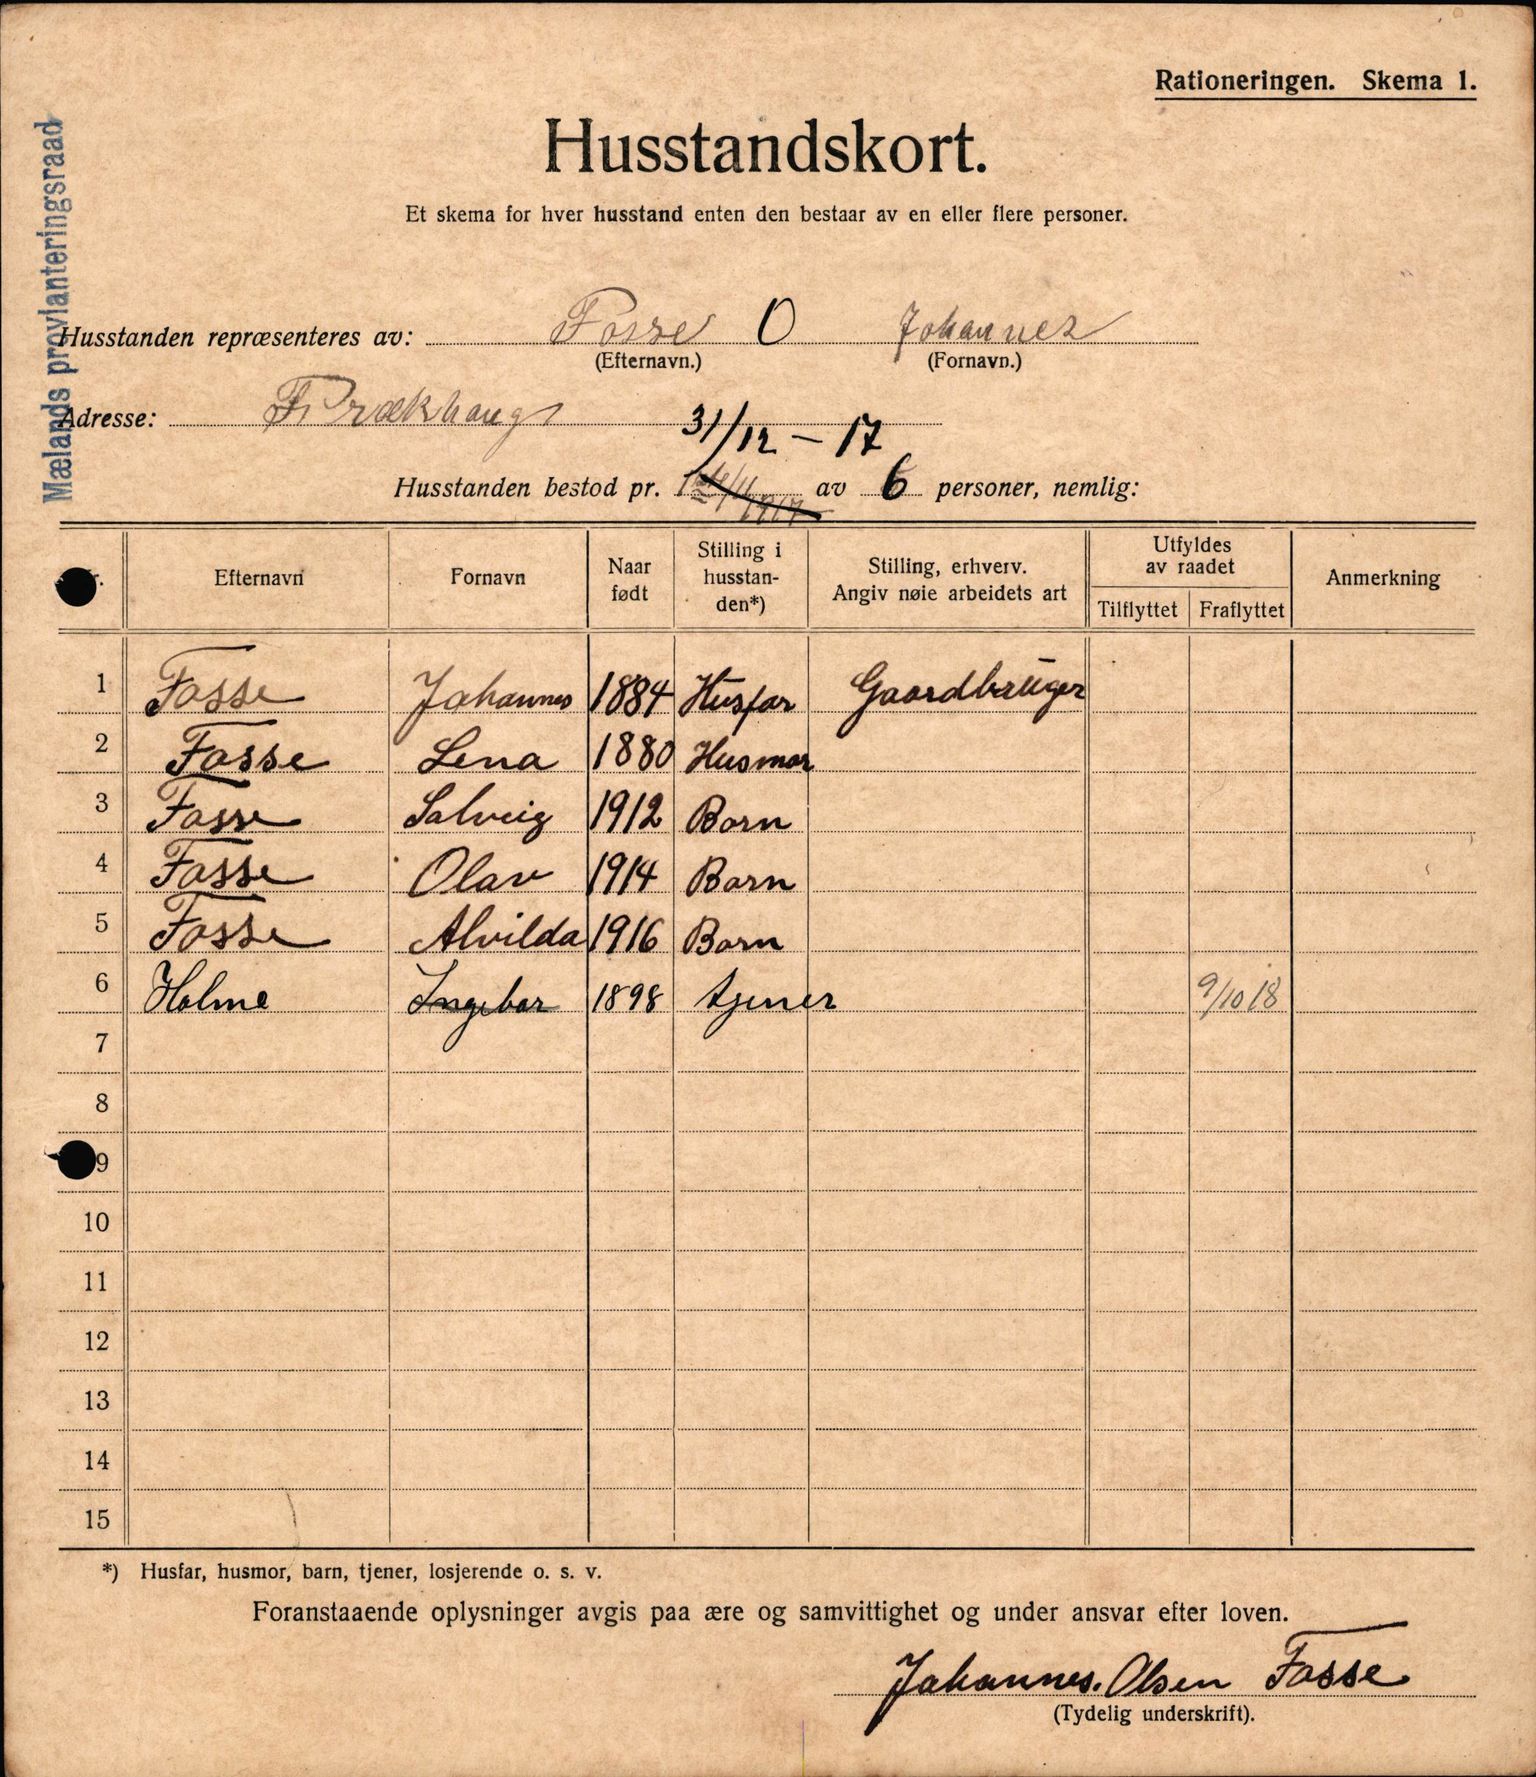 Rationeringen. Skema 1.
Husstandskort.
Et skema for hver husstand enten den bestaar av en eller flere personer.
Mælands provianteringsraad
Husstanden repræsenteres av: Fosse O Johannes
(Efternavn.) (Fornavn.)
Adresse:
31/12 - 17
Husstanden bestod pr. av 6 personer, nemlig:
Efternavn Fornavn Naar født Stilling i husstanden*) Stilling, erhverv. Angiv nøie arbeidets art Utfyldes av raadet Tilflyttet Fraflyttet Anmerkning
1 Fosse Johannes 1884 Husfar Gaardbrüger
2 Fosse Lena 1880 Husmor
3 Fosse Solveig 1912 Barn
4 Fosse Olav 1914 Barn
5 Fosse Alvilda 1916 Barn
6 Holme Ingebor 1898 tjener 9/10 18
7
8
9
10
11
12
13
14
15
*) Husfar, husmor, barn, tjener, losjerende o. s. v.
Foranstaaende oplysninger avgis paa ære og samvittighet og under ansvar efter loven.
Johannes. Olsen Fosse
(Tydelig underskrift).